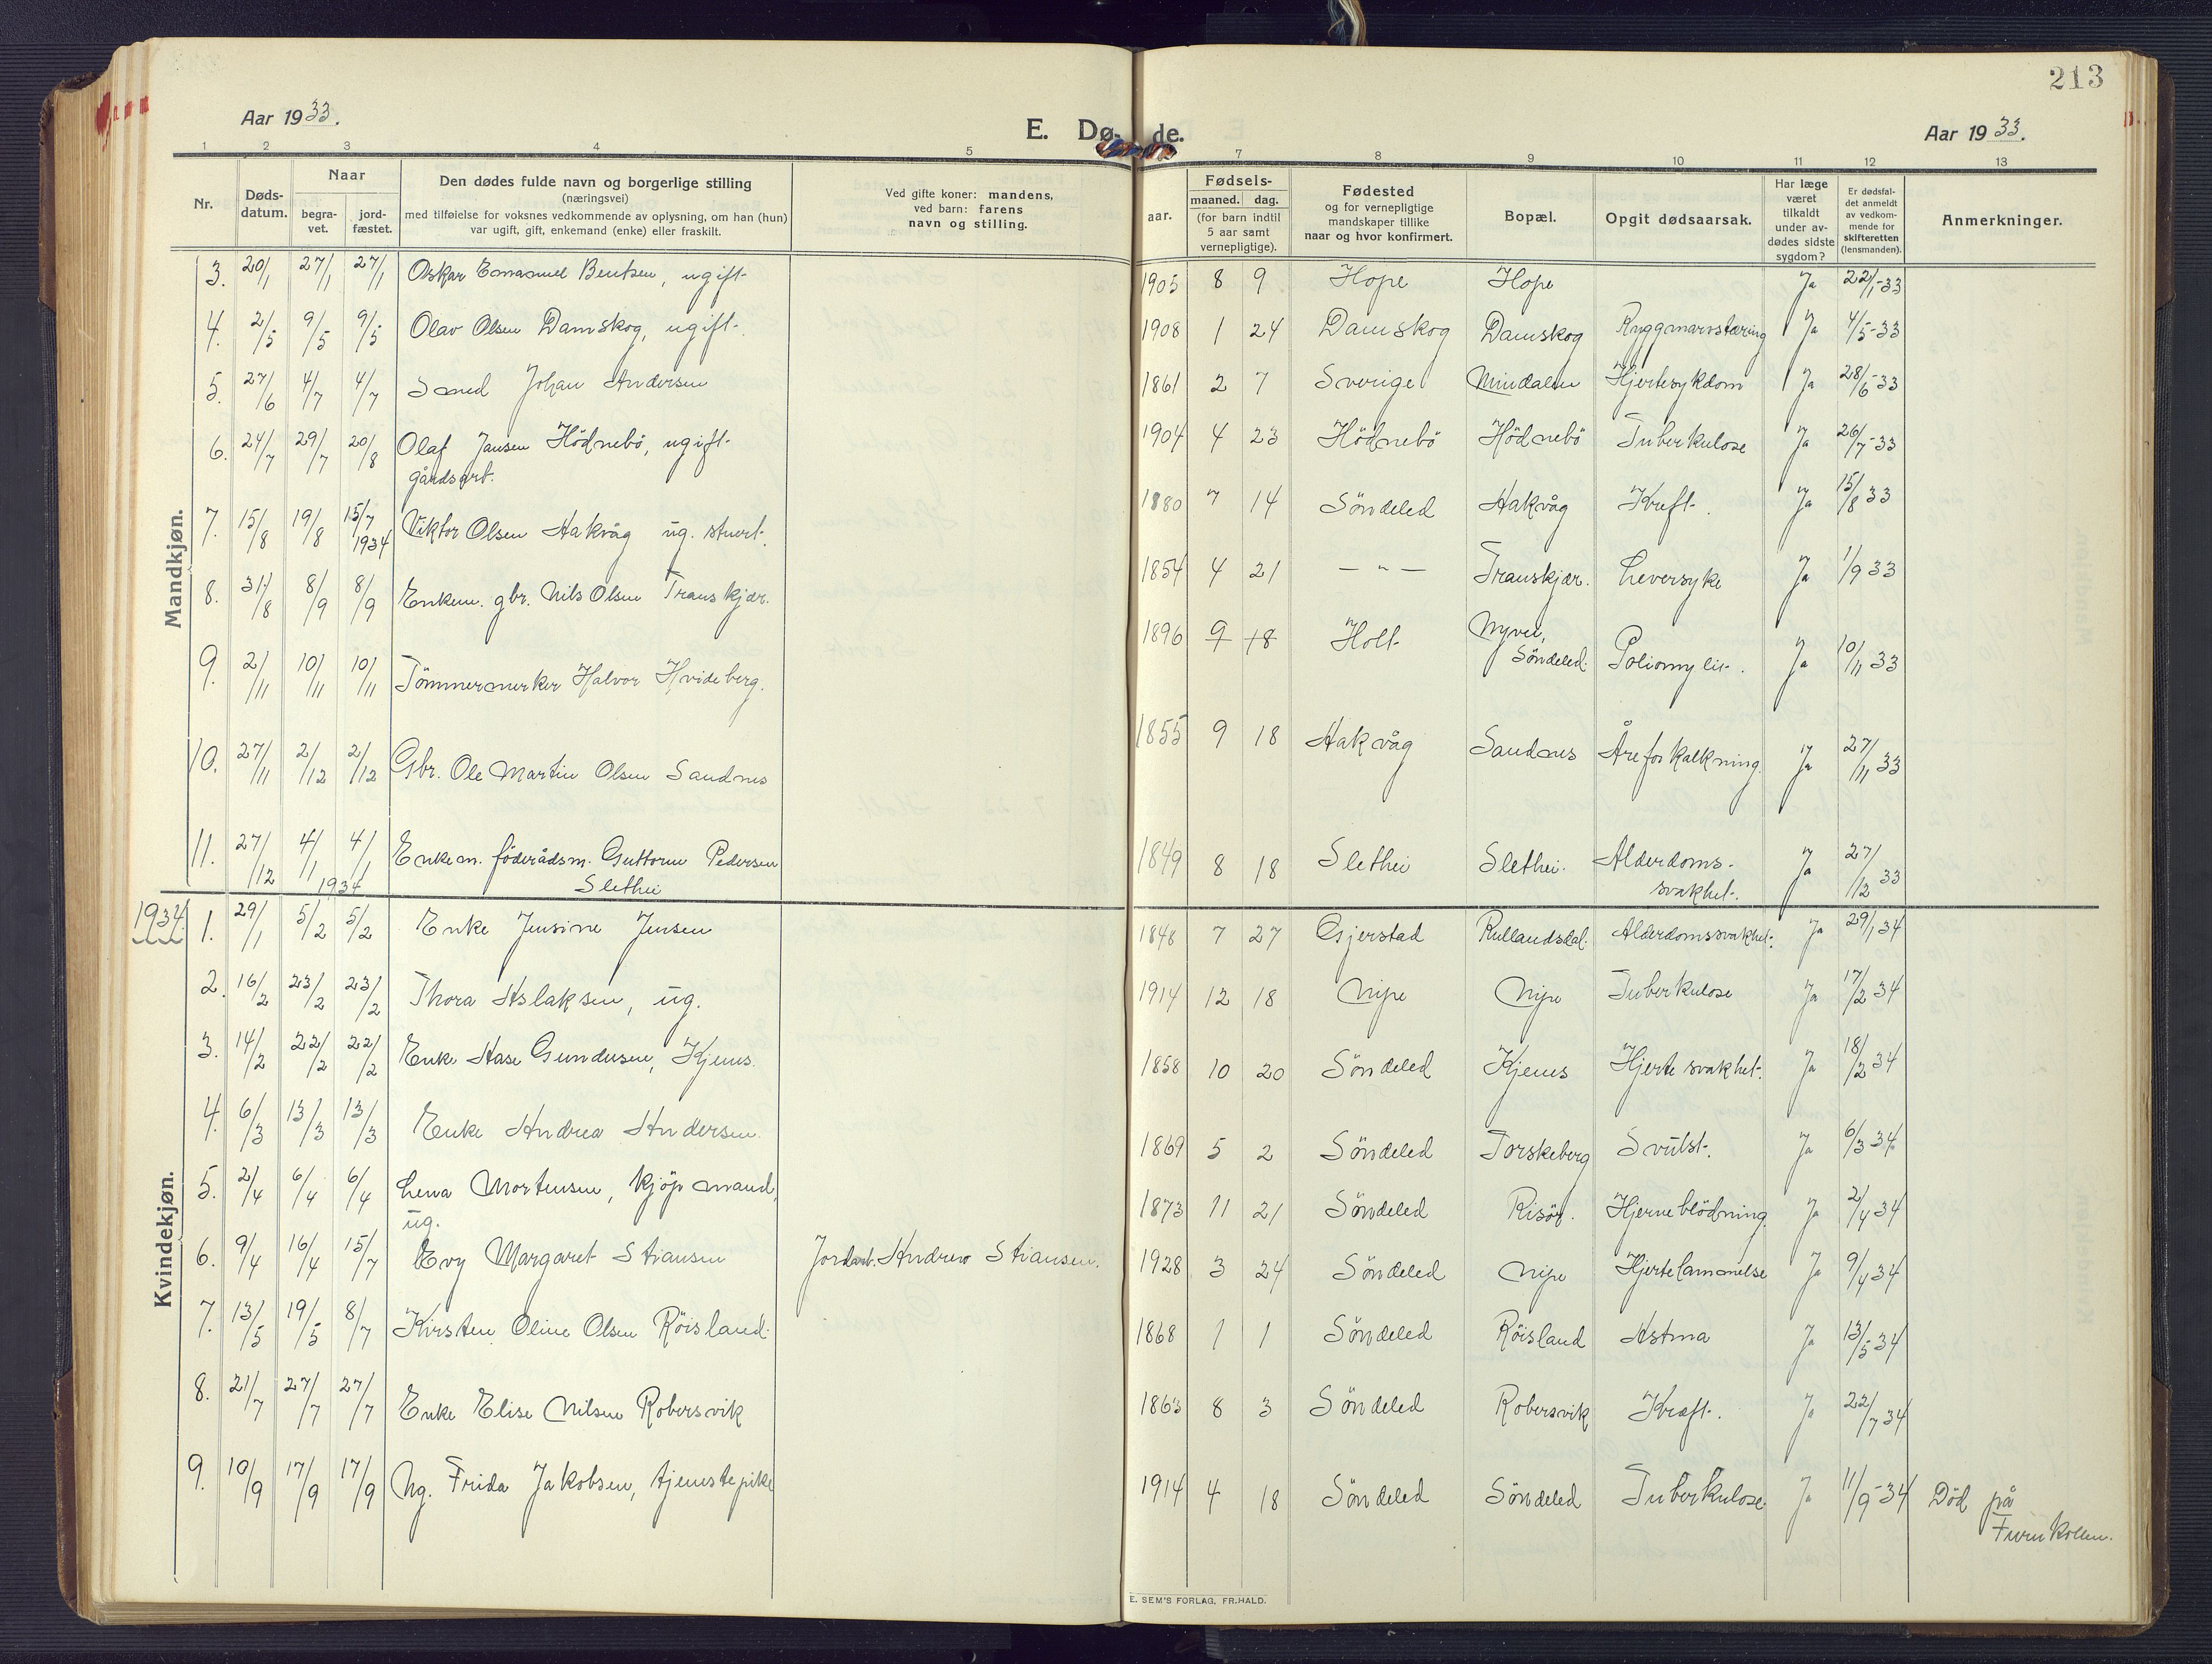 213
Aar 1933.
E. Dø- de.
Aar 1933.
1 2 3 4 5 7 8 9 10 11 12 13
Nr.
Døds-
datum.
Naar
begra-
vet.
jord-
fæstet.
Den dødes fulde navn og borgerlige stilling
(næringsvei)
med tilføielse for voksnes vedkommende av oplysning, om han (hun)
var ugift, gift, enkemand (enke) eller fraskilt.
Ved gifte koner: mandens,
ved barn: farens
navn og stilling.
Fødsels-
aar.
maaned. dag.
(for barn indtil
5 aar samt
vernepligtige).
Fødested
og for vernepligtige
mandskaper tillike
naar og hvor konfirmert.
Bopæl.
Opgit dødsaarsak.
Har læge
været
tilkaldt
under av-
dødes sidste
sygdom?
Er dødsfal-
det anmeldt
av vedkom-
mende for
skifteretten
(lensmanden).
Anmerkninger.
Mandkjøn.
3. 20/1 27/1 27/1 Oskar Emanuel Bentsen, ugift. 1905 8 9 Hope Hope Ja 22/1-33
4. 2/5 9/5 9/5 Olav Olsen Damskog, ugift. 1908 1 24 Damskog Damskog Ryggmarvstæring Ja 4/5-33
5. 27/6 4/7 4/7 Smed Johan Andersen 1861 2 7 Sverige Mindalen Hjertesykdom Ja 28/6-33
6. 24/7 29/7 20/8 Olaf Jansen Hödnebö, ugift. 1904 4 23 Hödnebö Hödnebö Tuberkulose Ja 26/7-33
gårdsarb.
7. 15/8 19/8 15/7 1934 Viktor Olsen Hakvåg ug. stuert. 1880 7 14 Söndeled Hakvåg Kreft. Ja 15/8 33
8. 31/8 8/9 8/9 Enkem. gbr. Nils Olsen Transkjær. 1854 4 21 — " — Transkjær. Leversyke Ja 1/9 33
9. 2/11 10/11 10/11 Tömmermerker Halvor Hvideberg. 1896 9 18 Holt Nyvei, Söndeled. Poliomylit. Ja 10/11 33
10. 27/11 2/12 2/12 Gbr. Ole Martin Olsen Sandnes 1855 9 18 Hakvåg Sandnes Åreforkalkning. Ja 27/11 33
11. 27/12 4/1 4/1 1934 Enkem. föderådsm. Guttorm Pedersen 1849 8 18 Slethei Slethei. Alderdoms- Ja 27/12 33
Slethei svakhet.
1934.
Kvindekjøn.
1. 29/1 5/2 5/2 Enke Jensine Jensen 1848 7 27 Gjerstad Rullandsdal. Alderdomssvakhet. Ja 29/1 34
2. 16/2 23/2 23/2 Thora Aslaksen, ug. 1914 12 18 Nipe Nipe Tuberkulose Ja 17/2 34
3. 14/2 22/2 22/2 Enke Aase Gundersen, Kjems. 1858 10 20 Söndeled Kjems Hjertesvakhet. Ja 18/2 34
4. 6/3 13/3 13/3 Enke Andrea Andersen. 1869 5 2 Söndeled Torskeberg Svulst. Ja 6/3 34
5. 2/4 6/4 6/4 Lena Mortensen, kjöpmand, 1873 11 21 Söndeled Risör. Hjerneblödning. Ja 2/4 34
ug.
6. 9/4 16/4 15/7 Evy Margaret Stiansen Jordarb. Andrew Stiansen. 1928 3 24 Söndeled Nipe Hjertelammelse Ja 9/4 34
7. 13/5 19/5 8/7 Kirsten Oline Olsen Röisland. 1868 1 1 Söndeled Röisland Astma Ja 13/5 34
8. 21/7 27/7 27/7 Enke Elise Nilsen Robersvik 1863 8 3 Söndeled Robersvik Kreft. Ja 22/7 34
9. 10/9 17/9 17/9 Ug. Frida Jakobsen, tjenstepike 1914 4 18 Söndeled Söndeled Tuberkulose. Ja 11/9-34 Död på
Furukollen.
E. SEM'S FORLAG, FR.HALD.